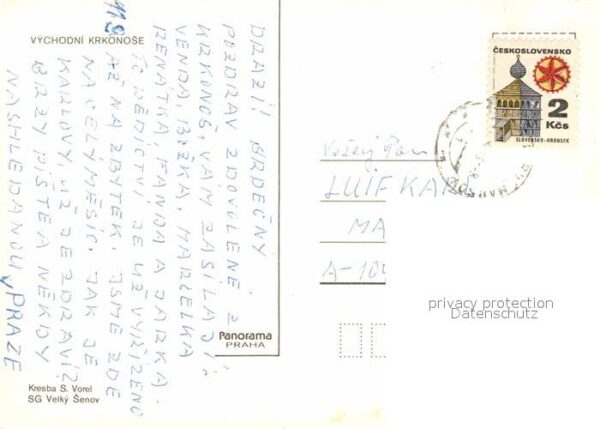 VÝCHODNÍ KRKONOŠE
11.9
DRAZÍ! SRDEČNÝ
POZDRAV Z DOVOLENÉ Z
KRKONOŠ, VÁM ZASÍLAJÍ:
VENDA, BOŽKA, MARCELKA
RENATKA, FANDA A JARKA.
TO DĚDICTVÍ JE UŽ VYŘÍZENO
AŽ NA ZBYTEK. JSME ZDE
NA CELÝ MĚSÍC. JAK JE
KARLOVY UŽ JE ZDRAVÍ?
BRZY PIŠTE A NĚKDY
NASHLEDANOU V PRAZE
Kresba S. Vorel
SG Velký Šenov
Panorama
PRAHA
ČESKOSLOVENSKO
2
Kčs
SLOVENSKO-HRONSEK
Vážený Pan
LUIF KAR
MA
A-10
privacy protection
Datenschutz